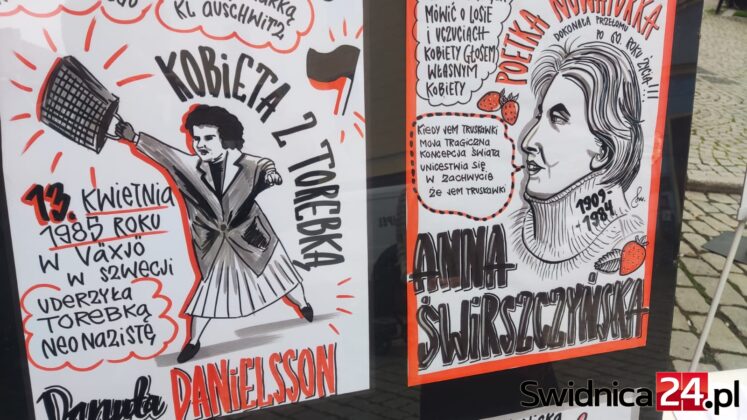 KL AUSCHWITZ
KOBIETA Z TOREBKĄ
13. KWIETNIA
1985 ROKU
W VÄXJÖ
W SZWECJI
UDERZYŁA
TOREBKĄ
NEONAZISTĘ
Danuta DANIELSSON
MÓWIĆ O LOSIE
I UCZUCIACH
KOBIETY GŁOSEM
WŁASNYM
KOBIETY
POETKA NOWATORKA
DOKONAŁA PRZEŁOMU
PO 60. ROKU
ŻYCIA!!!
KIEDY JEM TRUSKAWKI
MOJA TRAGICZNA
KONCEPCJA ŚWIATA
UNICESTWIA SIĘ
W ZACHWYCIE
ŻE JEM TRUSKAWKI
1909-
-1984
ANNA
ŚWIRSZCZYŃSKA
Swidnica24.pl